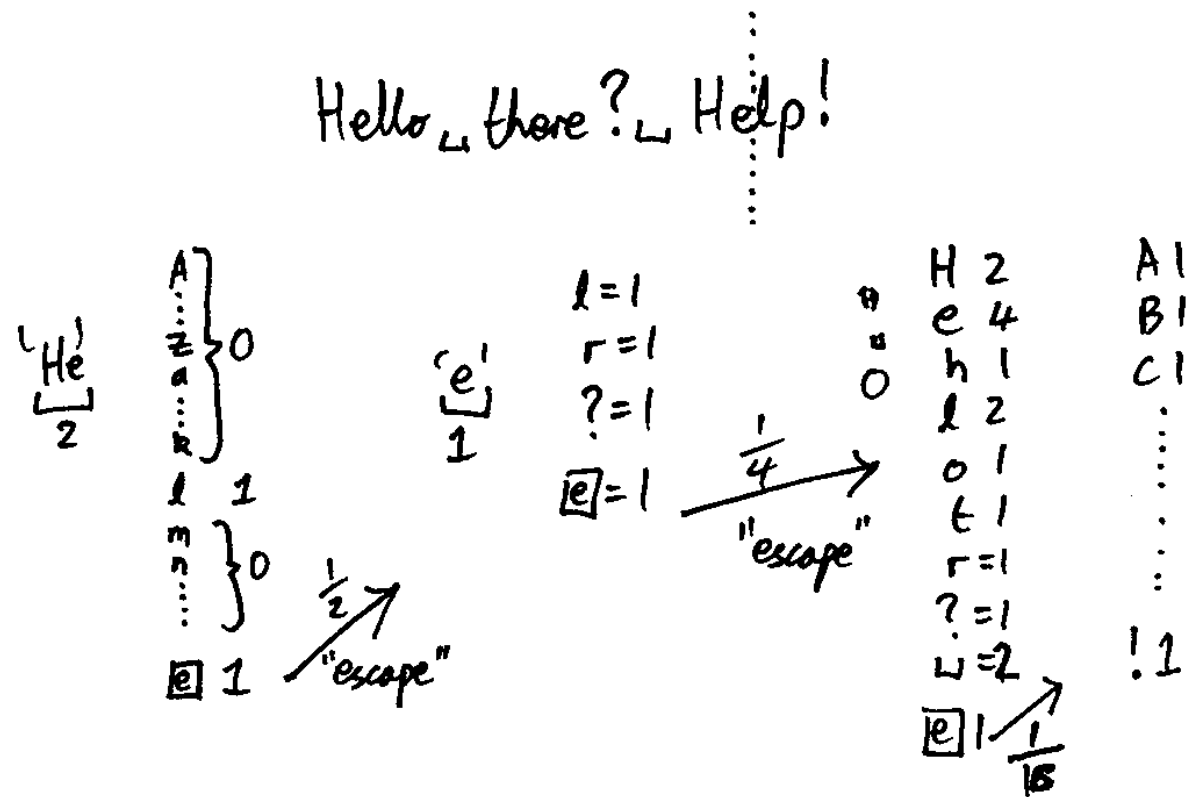 Hello␣there?␣Help!
'He'
2
A
z
a
k
0
l 1
m
n
0
e 1
1/2
"escape"
'e'
1
l=1
r=1
?=1
e=1
1/4
"escape"
''
0
H 2
e 4
h 1
l 2
o 1
t 1
r=1
?=1
␣=2
e 1
A 1
B 1
C 1
! 1